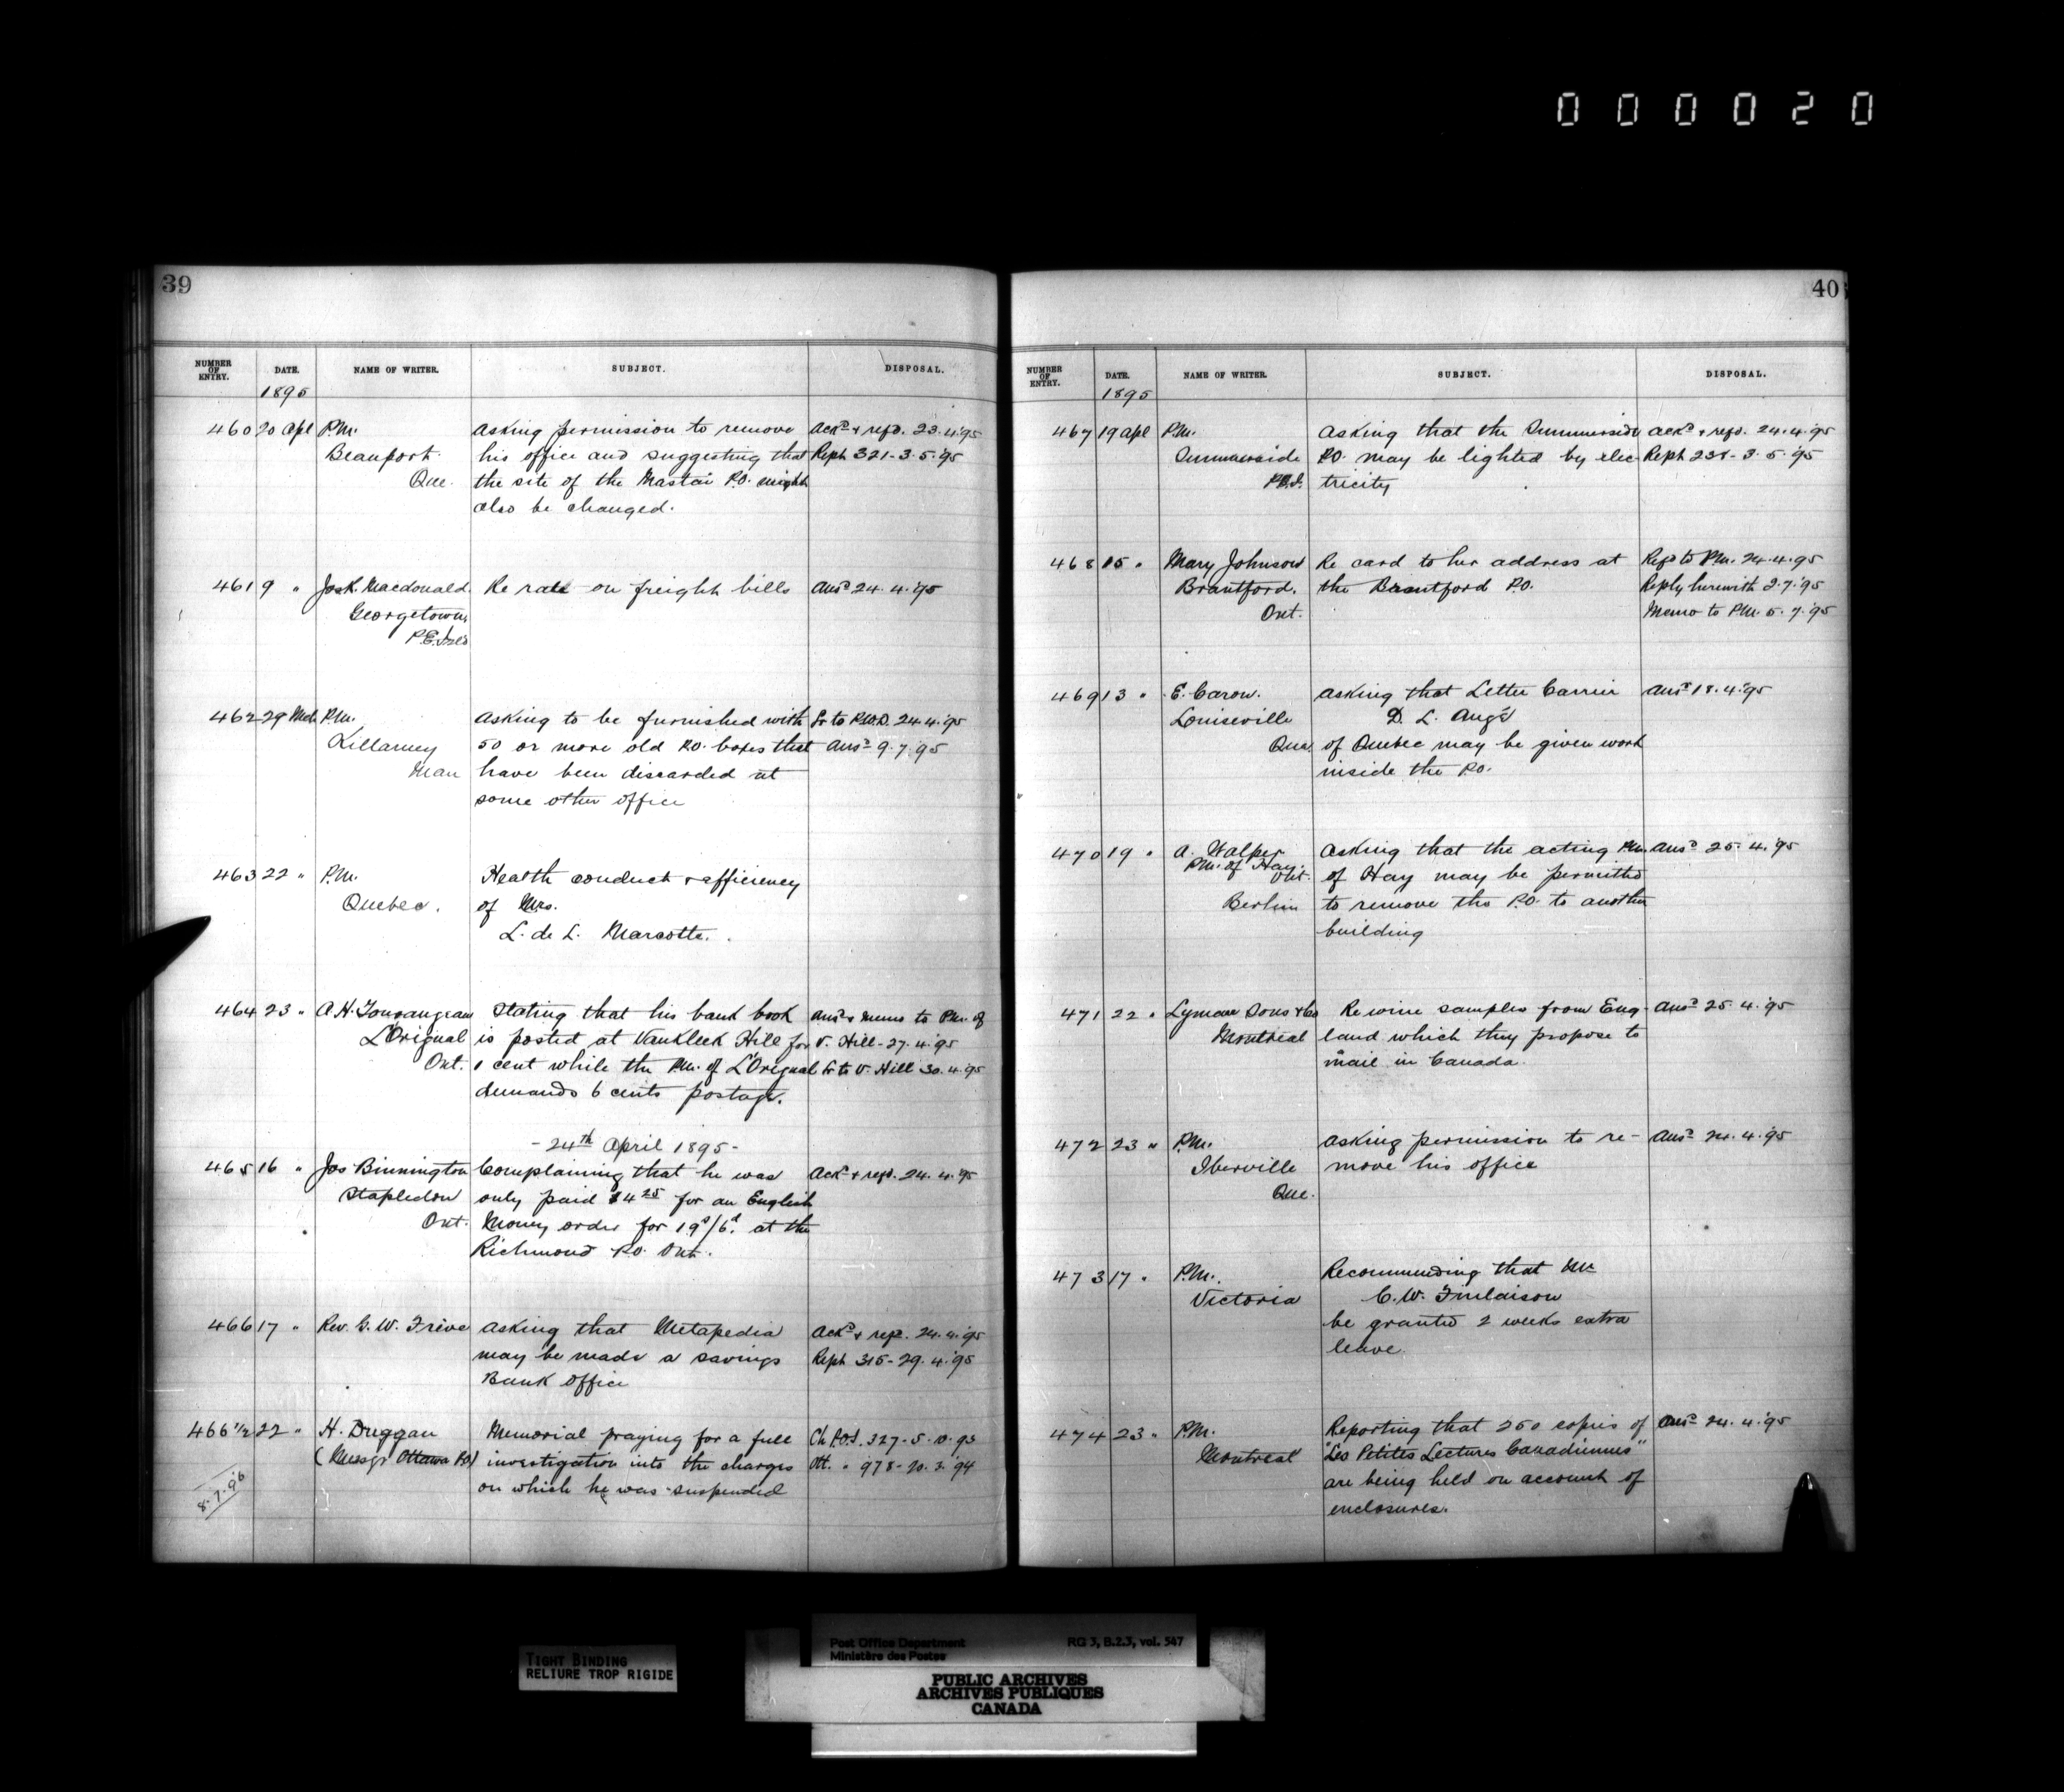 000020
39
NUMBER OF ENTRY. DATE. NAME OF WRITER. SUBJECT. DISPOSAL.
1895
460 20 Apl P.M. Asking permission to remove Ackd & refd. 23.4.'95
Beauport. his office and suggesting that Reph 321-3.5.'95
Que. the site of the Mastai P.O. might
also be changed.
461 9 " Jos. K. Macdonald Re rate on freight bills Ansd 24.4.'95
Georgetown,
P.E. Isld
462 29 Mch P.M. Asking to be furnished with Fr to P.O.D. 24.4.'95
Killarney 50 or more old P.O. boxes that Ansd 9.7.'95
Man have been discarded at
some other office
463 22 " P.M. Health conduct & efficiency
Quebec. of Mrs.
L. de L. Marcotte.
464 23 " A.H. Stating that his bank book Ansd & memo to P.M. of
L'Orignal is posted at Vankleek Hill for V. Hill-27.4.'95
Ont. 1 cent while the P.M. of L'Orignal Fr to V. Hill 30.4.'95
demands 6 cents postage.
- 24th April 1895 -
465 16 " Jos Binnington Complaining that he was Ackd & refd. 24.4.'95
Stapledon only paid $4 25 for an English
Ont. Money order for 19s/6d. at the
Richmond P.O. Ont.
466 17 " Rev. G.W. Asking that Metapedia Ackd & refd. 24.4.'95
may be made a savings Reph 315-29.4.'95
Bank office
466 1/2 22 " H. Duggan Memorial praying for a full Ch P.O.I. 327-5.10.93
(Messgr Ottawa P.O.) investigation into the charges Ott. " 978-20.3.'94
8.7.96 on which he was suspended
40
NUMBER OF ENTRY. DATE. NAME OF WRITER. SUBJECT. DISPOSAL.
1895
467 19 Apl P.M. Asking that the Summerside Ackd & refd. 24.4.'95
Summerside P.O. may be lighted by elec- Reph 238-3.5.'95
P.E.I. tricity
468 15 " Mary Johnson Re card to her address at Refd to P.M. 24.4.'95
Brantford. the Brantford P.O. Reply herewith 2.7.'95
Ont. Memo to P.M. 5.7.'95
469 13 " E. Caron. Asking that Letter Carrier Ansd 18.4.'95
Louiseville D. L. Augé
Que. of Quebec may be given work
inside the P.O.
470 19 " A. Walper Asking that the acting P.M. Ansd 25.4.'95
P.M. of Hay. Ont. of Hay may be permitted
Berlin to remove the P.O. to another
building
471 22 " Lyman Sons & Co Re wine samples from Eng- Ansd 25.4.'95
Montreal land which they propose to
mail in Canada.
472 23 " P.M. Asking permission to re- Ansd 24.4.'95
Iberville move his office
Que.
473 17 " P.M. Recommending that Mr
Victoria C.W. Finlaison
be granted 2 weeks extra
leave.
474 23 " P.M. Reporting that 250 copies of Ansd 24.4.'95
Montreal "Les Petites Lectures Canadiennes"
are being held on account of
enclosures.
TIGHT BINDING
RELIURE TROP RIGIDE
Post Office Department RG 3, B.2.3, vol. 547
Ministère des Postes
PUBLIC ARCHIVES
ARCHIVES PUBLIQUES
CANADA